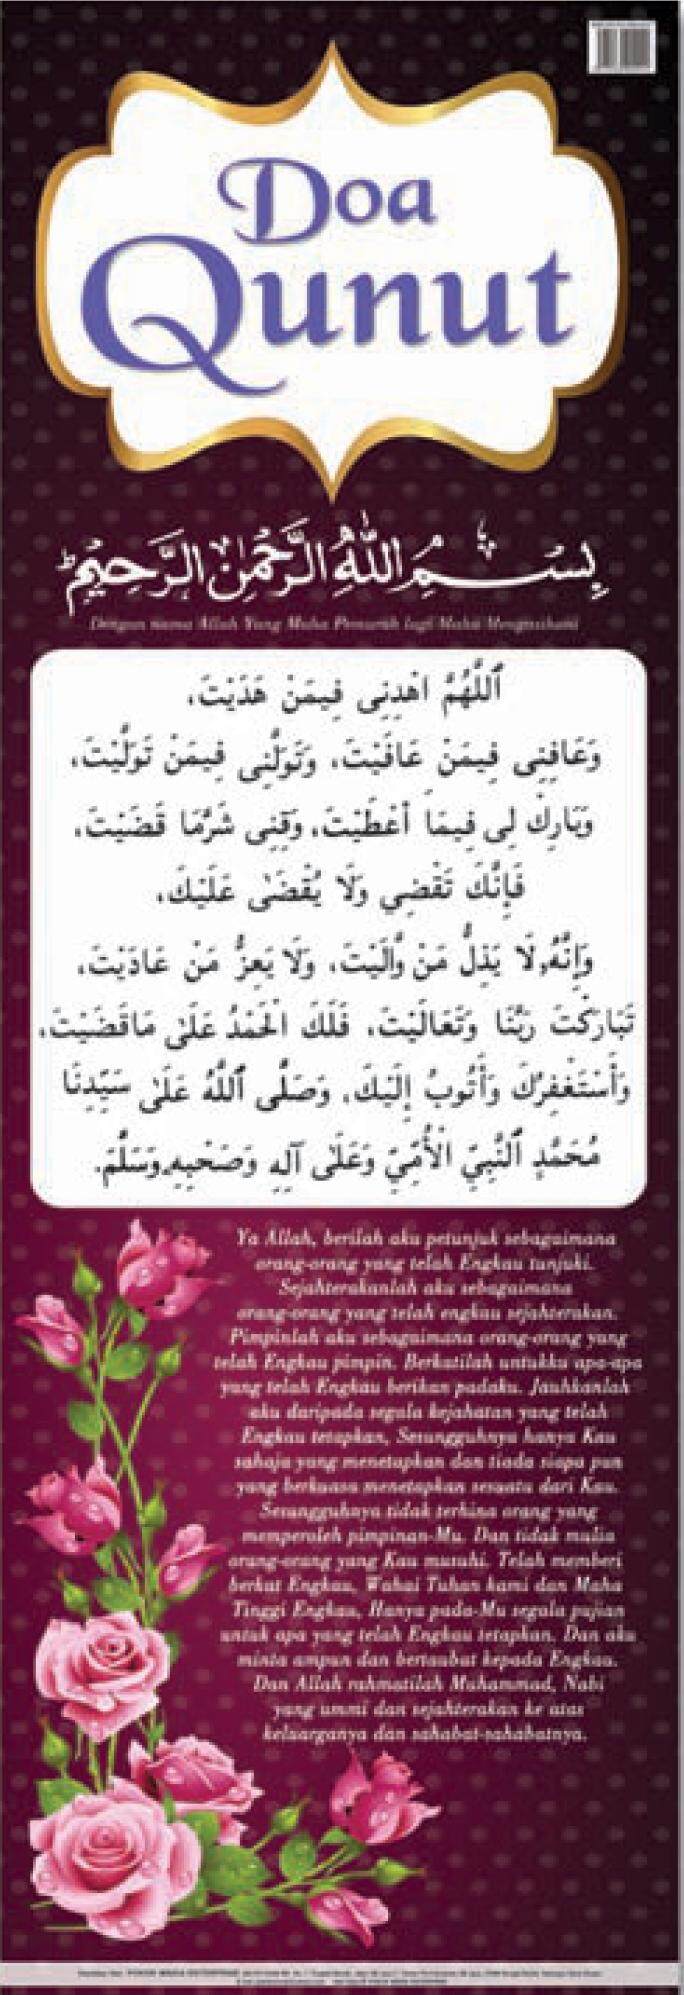 Doa
Qunut
بِسْمِ اللهِ الرَّحْمٰنِ الرَّحِيْمِ
Dengan nama Allah Yang Maha Pemurah lagi Maha Mengasihani
اَللَّهُمَّ اهْدِنِى فِيمَنْ هَدَيْتَ،
وَعَافِنِى فِيمَنْ عَافَيْتَ، وَتَوَلَّنِى فِيمَنْ تَوَلَّيْتَ،
وَبَارِكْ لِى فِيمَا أَعْطَيْتَ، وَقِنِى شَرَّمَا قَضَيْتَ،
فَإِنَّكَ تَقْضِي وَلَا يُقْضَىٰ عَلَيْكَ،
وَإِنَّهُ لَا يَذِلُّ مَنْ وَّالَيْتَ، وَلَا يَعِزُّ مَنْ عَادَيْتَ،
تَبَارَكْتَ رَبَّنَا وَتَعَالَيْتَ، فَلَكَ الْحَمْدُ عَلَىٰ مَاقَضَيْتَ،
وَأَسْتَغْفِرُكَ وَأَتُوبُ إِلَيْكَ، وَصَلَّى ٱللَّهُ عَلَىٰ سَيِّدِنَا
مُحَمَّدٍ ٱلنَّبِيِّ الْأُمِّيِّ وَعَلَىٰ آلِهِ وَصَحْبِهِ وَسَلَّمَ.
Ya Allah, berilah aku petunjuk sebagaimana
orang-orang yang telah Engkau tunjuki.
Sejahterakanlah aku sebagaimana
orang-orang yang telah engkau sejahterakan.
Pimpinlah aku sebagaimana orang-orang yang
telah Engkau pimpin. Berkatilah untukku apa-apa
yang telah Engkau berikan padaku. Jauhkanlah
aku daripada segala kejahatan yang telah
Engkau tetapkan, Sesungguhnya hanya Kau
sahaja yang menetapkan dan tiada siapa pun
yang berkuasa menetapkan sesuatu dari Kau.
Sesungguhnya tidak terhina orang yang
memperoleh pimpinan-Mu. Dan tidak mulia
orang-orang yang Kau musuhi. Telah memberi
berkat Engkau, Wahai Tuhan kami dan Maha
Tinggi Engkau, Hanya pada-Mu segala pujian
untuk apa yang telah Engkau tetapkan. Dan aku
minta ampun dan bertaubat kepada Engkau.
Dan Allah rahmatilah Muhammad, Nabi
yang ummi dan sejahterakan ke atas
keluarganya dan sahabat-sahabatnya.